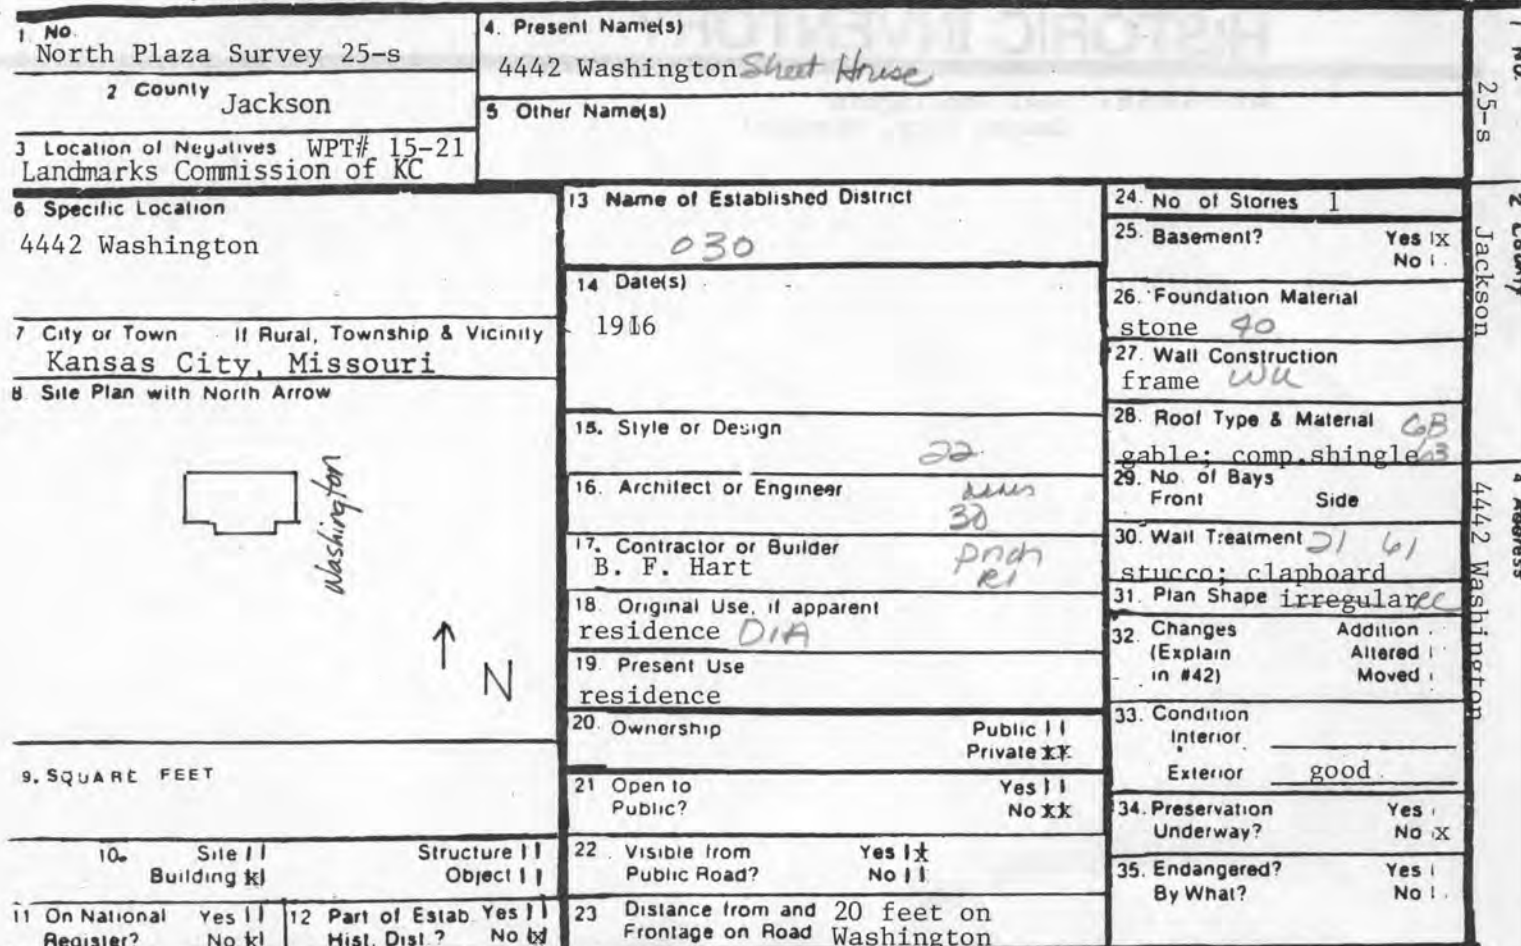 1. No.
North Plaza Survey 25-s
2 County Jackson
3 Location of Negatives WPT# 15-21
Landmarks Commission of KC
4. Present Name(s)
4442 Washington Street House
5 Other Name(s)
6 Specific Location
4442 Washington
7 City or Town If Rural, Township & Vicinity
Kansas City, Missouri
8 Site Plan with North Arrow
Washington
N
9. SQUARE FEET
10. Site
Structure
Building x
Object
11 On National Register? Yes No x
12 Part of Estab. Hist. Dist.? Yes No x
13 Name of Established District
030
14 Date(s)
1916
15. Style or Design
22
16. Architect or Engineer
30
17. Contractor or Builder
B. F. Hart
18. Original Use, if apparent
residence 01A
19. Present Use
residence
20. Ownership
Public
Private xx
21 Open to Public?
Yes
No xx
22 Visible from Public Road?
Yes x
No
23 Distance from and Frontage on Road
20 feet on Washington
24. No of Stories 1
25. Basement?
Yes x
No
26. Foundation Material
stone 40
27. Wall Construction
frame
28. Roof Type & Material GB
gable; comp.shingle 63
29. No. of Bays
Front Side
30. Wall Treatment 21 61
stucco; clapboard
31. Plan Shape irregular RC
32. Changes (Explain in #42)
Addition
Altered
Moved
33. Condition
Interior
Exterior good
34. Preservation Underway?
Yes
No x
35. Endangered? By What?
Yes
No
1 No.
25-s
2 County
Jackson
4 Address
4442 Washington